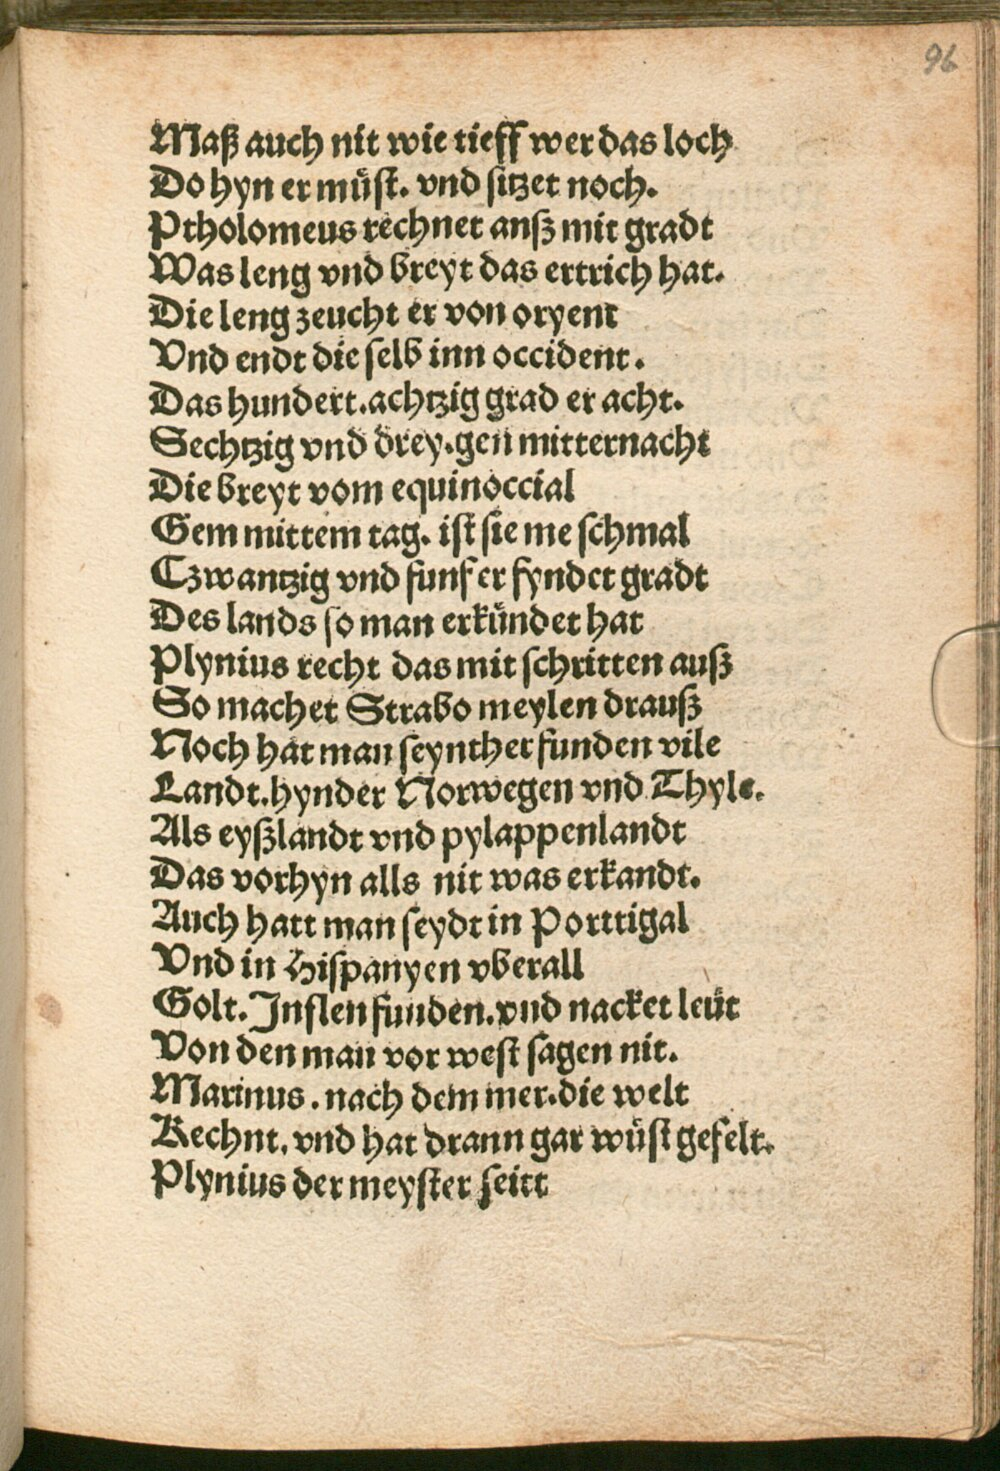 96
Maß auch nit wie tieff wer das loch
Do hyn er müst. vnd sitzet noch.
Ptholomeus rechnet anß mit gradt
Was leng vnd breyt das ertrich hat.
Die leng zeucht er von oryent
Vnd endt die selb inn occident.
Das hundert.achtzig grad er acht.
Sechtzig vnd drey.gen mitternacht
Die breyt vom equinoccial
Gem mittem tag. ist sie me schmal
Czwantzig vnd funf er fyndet gradt
Des lands so man erkündet hat
Plynius recht das mit schritten auß
So machet Strabo meylen drauß
Noch hat man seynther funden vile
Landt.hynder Norwegen vnd Thyle.
Als eyßlandt vnd pylappenlandt
Das vorhyn alls nit was erkandt.
Auch hatt man seydt in Porttigal
Vnd in Hispanyen vberall
Golt. Inslen funden.vnd nacket leüt
Von den man vor west sagen nit.
Marinus. nach dem mer.die welt
Rechnt. vnd hat drann gar wüst gefelt.
Plynius der meyster seitt